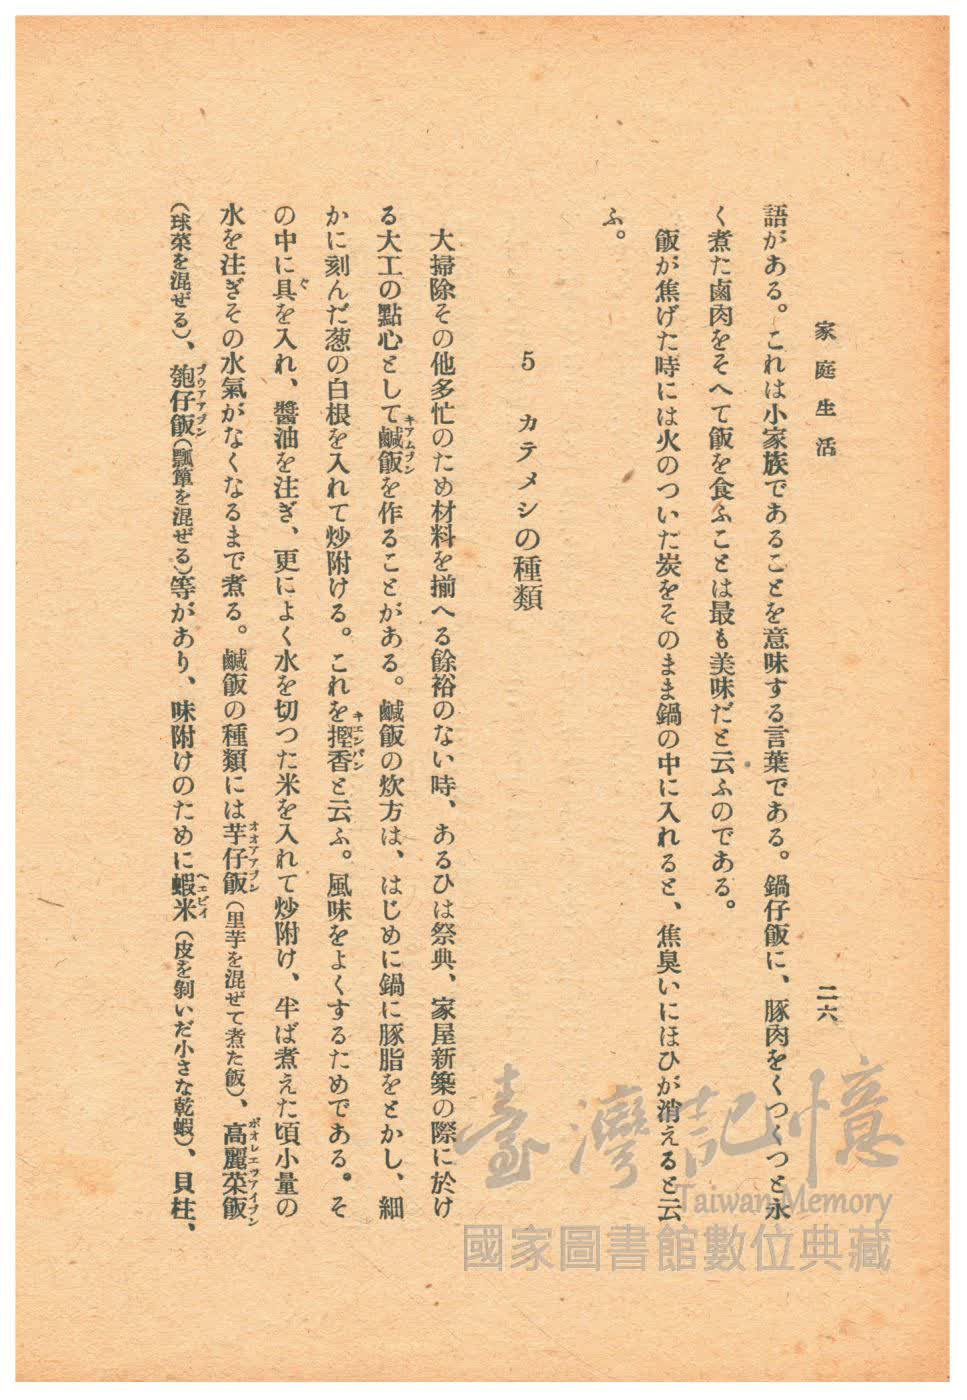 家庭生活
二六
語がある。これは小家族であることを意味する言葉である。鍋仔飯に、豚肉をくつくつと永
く煮た鹵肉をそへて飯を食ふことは最も美味だと云ふのである。
飯が焦げた時には火のついだ炭をそのまま鍋の中に入れると、焦臭いにほひが消えると云
ふ。
5 カテメシの種類
大掃除その他多忙のため材料を揃へる餘裕のない時、あるひは祭典、家屋新築の際に於け
る大工の點心として鹹飯を作ることがある。鹹飯の炊方は、はじめに鍋に豚脂をとかし、細
キアムプン
かに刻んだ葱の白根を入れて炒附ける。これを摼香と云ふ。風味をよくするためである。そ
キエンパン
の中に具を入れ、醬油を注ぎ、更によく水を切つた米を入れて炒附け、半ば煮えた頃小量の
ぐ
水を注ぎその水氣がなくなるまで煮る。鹹飯の種類には芋仔飯(里芋を混ぜて煮た飯)、高麗菜飯
オオアアプン
ポオレエツアイプン
(球菜を混ぜる)、匏仔飯(瓢簞を混ぜる)等があり、味附けのために蝦米(皮を剝いだ小さな乾蝦)、貝柱、
プウアアプン
ヘエビイ
臺灣記憶
Taiwan Memory
國家圖書館數位典藏